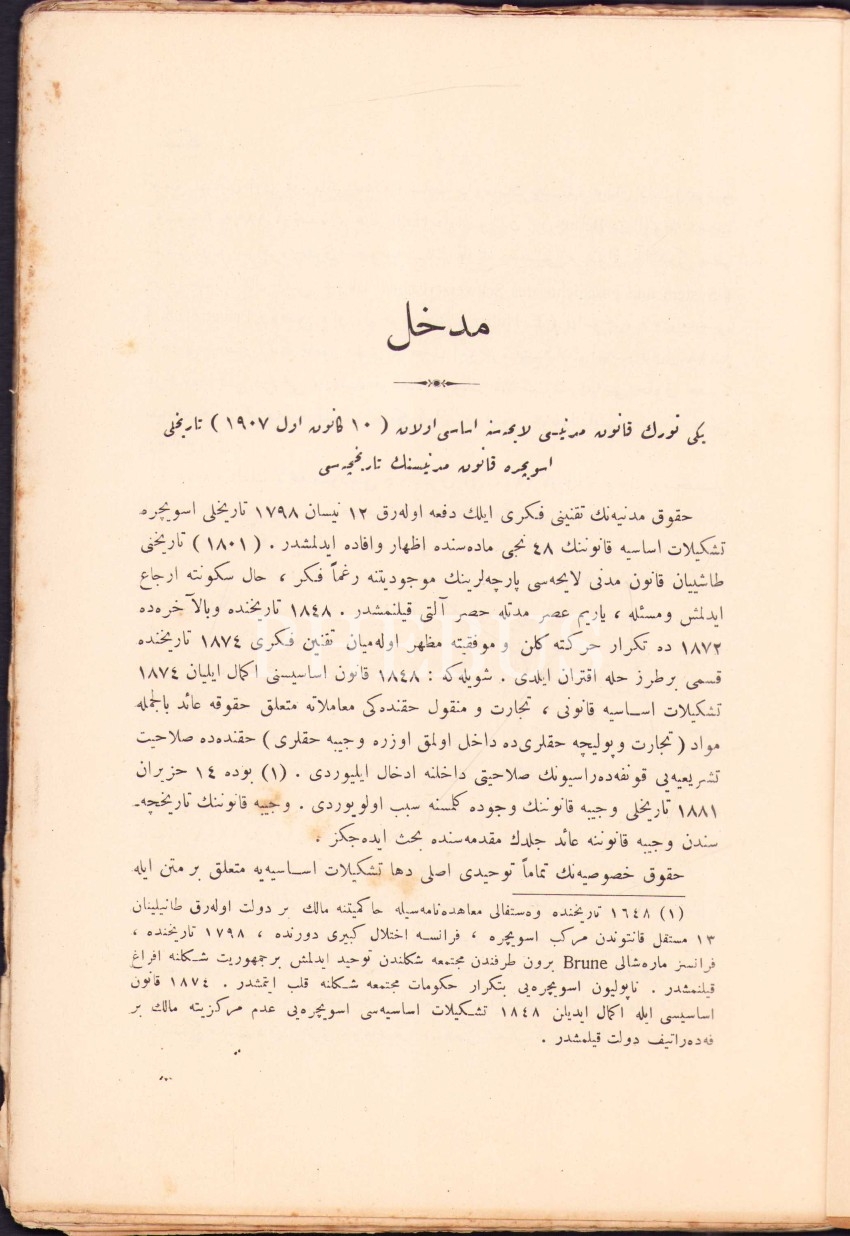 مدخل
یكی تورك قانون مدنیسی لایحه‌سنه اساسی اولان ( ۱۰ كانون اول ۱۹۰۷ ) تاریخلی
اسویچره قانون مدنیسنك تاریخچه‌سی
حقوق مدنیه‌نك تقنینی فكری ایلك دفعه اوله‌رق ۱۲ نیسان ۱۷۹۸ تاریخلی اسویچره
تشكیلات اساسیه قانوننك ٤۸ نجی ماده‌سنده اظهار وافاده ایدلمشدر . ( ۱۸۰۱ ) تاریخنی
طاشییان قانون مدنی لایحه‌سی پارچه‌لرینك موجودیتنه رغماً فكر ، حال سكونته ارجاع
ایدلمش ومسئله ، یاریم عصر مدتله حصر آلتی قیلنمشدر . ۱۸٤۸ تاریخنده وبالآخره‌ده
۱۸۷۲ ده تكرار حركته كلن و موفقیته مظهر اوله‌میان تقنین فكری ۱۸۷٤ تاریخنده
قسمی برطرز حله اقتران ایلدی . شویله‌كه : ۱۸٤۸ قانون اساسیسنی اكمال ایلیان ۱۸۷٤
تشكیلات اساسیه قانونی ، تجارت و منقول حقنده‌كی معاملاته متعلق حقوقه عائد بالجمله
مواد ( تجارت وپولیچه حقلری‌ده داخل اولمق اوزره وجیبه حقلری ) حقنده‌ده صلاحیت
تشریعیه‌یی قونفه‌ده‌راسیونك صلاحیتی داخلنه ادخال ایلیوردی . (۱) بوده ۱٤ حزیران
۱۸۸۱ تاریخلی وجیبه قانوننك وجوده كلمسنه سبب اولویوردی . وجیبه قانوننك تاریخچه‌ـ
سندن وجیبه قانوننه عائد جلدك مقدمه‌سنده بحث ایده‌جكز .
حقوق خصوصیه‌نك تماماً توحیدی اصلی دها تشكیلات اساسیه‌یه متعلق بر متن ایله
(۱) ۱٦٤۸ تاریخنده وه‌ستفالی معاهده‌نامه‌سیله حاكمیتنه مالك بر دولت اوله‌رق طانیلینان
۱۳ مستقل قانتوندن مركب اسویچره ، فرانسه اختلال كبیری دورنده ، ۱۷۹۸ تاریخنده ،
فرانسز ماره‌شالی Brune برون طرفندن مجتمعه شكلندن توحید ایدلمش برجمهوریت شكلنه افراغ
قیلنمشدر . ناپولیون اسویچره‌یی بتكرار حكومات مجتمعه شكلنه قلب ایتمشدر . ۱۸۷٤ قانون
اساسیسی ایله اكمال ایدیلن ۱۸٤۸ تشكیلات اساسیه‌سی اسویچره‌یی عدم مركزیته مالك بر
فه‌ده‌راتیف دولت قیلمشدر .